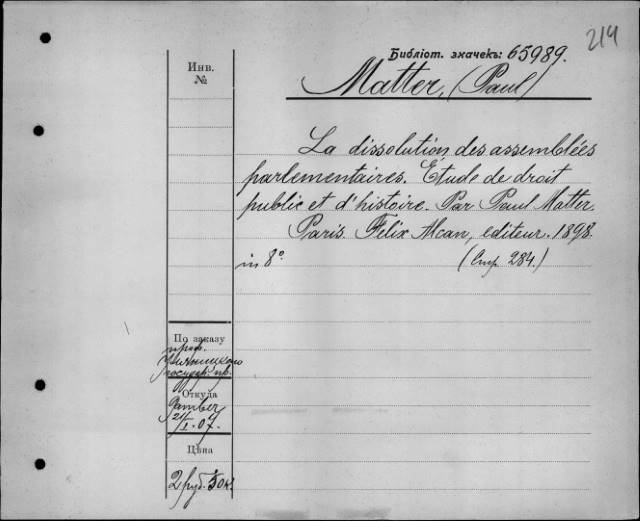 214
Библіот. значекъ: 65989.
Инв.
№
Matter, (Paul)
La dissolution des assemblées
parlementaires. Étude de droit
public et d'histoire. Par Paul Matter.
Paris. Félix Alcan, editeur. 1898.
in 8°.
(Стр. 284.)
По заказу
проф.
государ. пр.
Откуда
Gamber
21/I.07.
Цѣна
2 руб. 50 к.